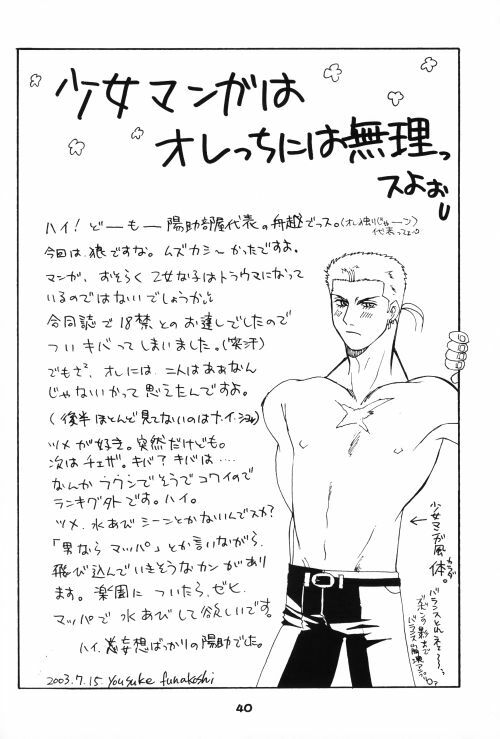 少女マンガは
オレっちには無理っ
スよぉ
ハイ！どーもー陽助部屋代表の舟越でっス。(オレ独りじゃーン)
代表ってよ
今回は狼ですな。ムズカシーかったですよ。
マンガ、おそらく乙女な子はトラウマになって
いるのではないでしょうか。
合同誌で18禁とのお達しでしたので
ついキバってしまいました。(笑汗)
でもざ、オレには二人はああなん
じゃないかって思えたんですよ。
(後半ほとんど見てないのはナ・イ・ショ)
ツメが好き。突然だけども。
次はチェザ。キバ？キバは…
なんかフクシでそうでコワイので
ランキング外です。ハイ。
ツメ、水あびシーンとかないんでスカ？
「男ならマッパ」とか言いながら、
飛び込んでいきそうなカンがあり
ます。楽園についたら、ゼヒ、
マッパで水あびして欲しいです。
ハイ、妄想ばっかりの陽助でした。
2003.7.15. yousuke funakoshi
←少女マンガ風
体。
カラダ
バランスとれネェ〜
ズボンの影まで
バランス
40